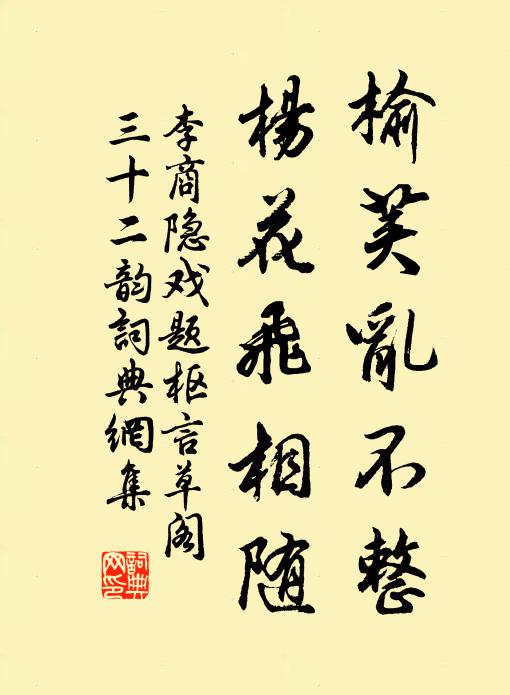 榆荚亂不整
楊花飛相随
李商隐戏题枢言草阁
三十二韵詞典網集
詞典網印